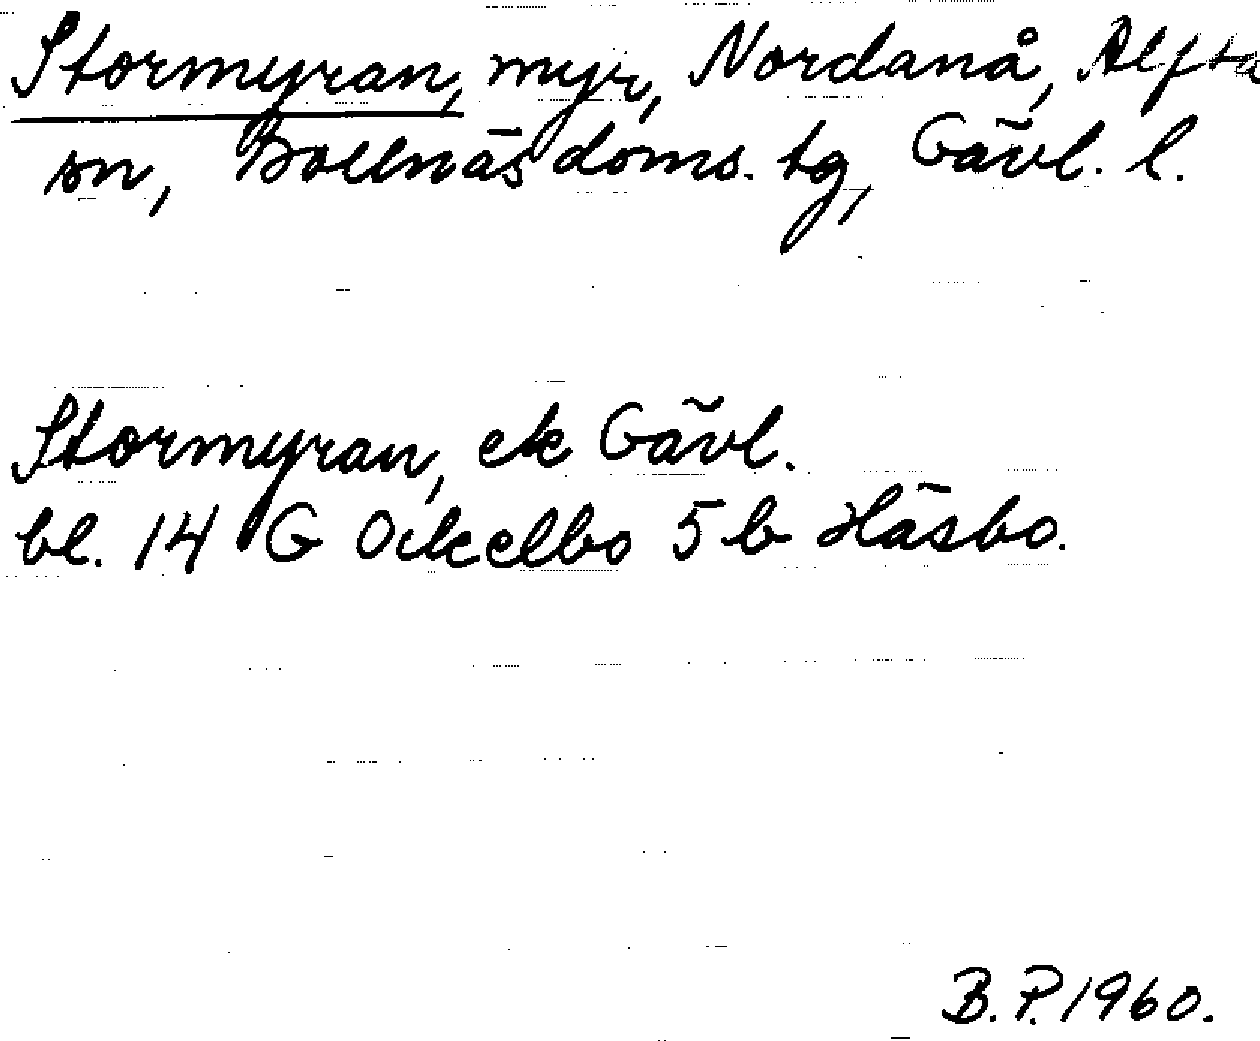 Stormyran, myr, Nordanå, Alfta
sn, Bollnäs doms. tg, Gävl. l.
Stormyran, ek Gävl.
bl. 14 G Ockelbo 5 b Häsbo.
B. P. 1960.